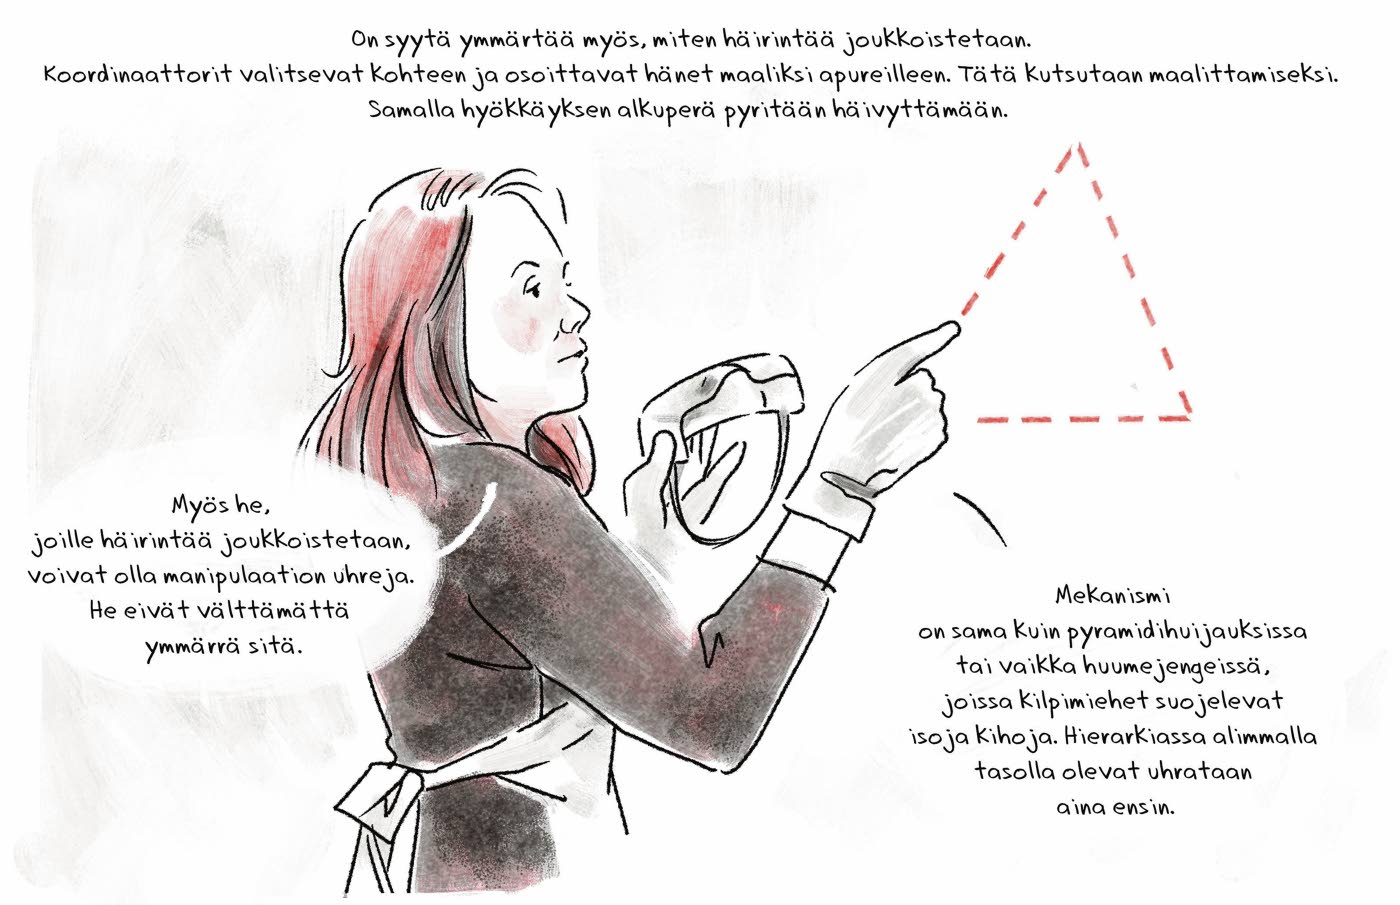 On syytä ymmärtää myös, miten häirintää joukkoistetaan.
Koordinaattorit valitsevat kohteen ja osoittavat hänet maaliksi apureilleen. Tätä kutsutaan maalittamiseksi.
Samalla hyökkäyksen alkuperä pyritään häivyttämään.
Myös he,
joille häirintää joukkoistetaan,
voivat olla manipulaation uhreja.
He eivät välttämättä
ymmärrä sitä.
Mekanismi
on sama kuin pyramidihuijauksissa
tai vaikka huumejengeissä,
joissa kilpimiehet suojelevat
isoja kihoja. Hierarkiassa alimmalla
tasolla olevat uhrataan
aina ensin.